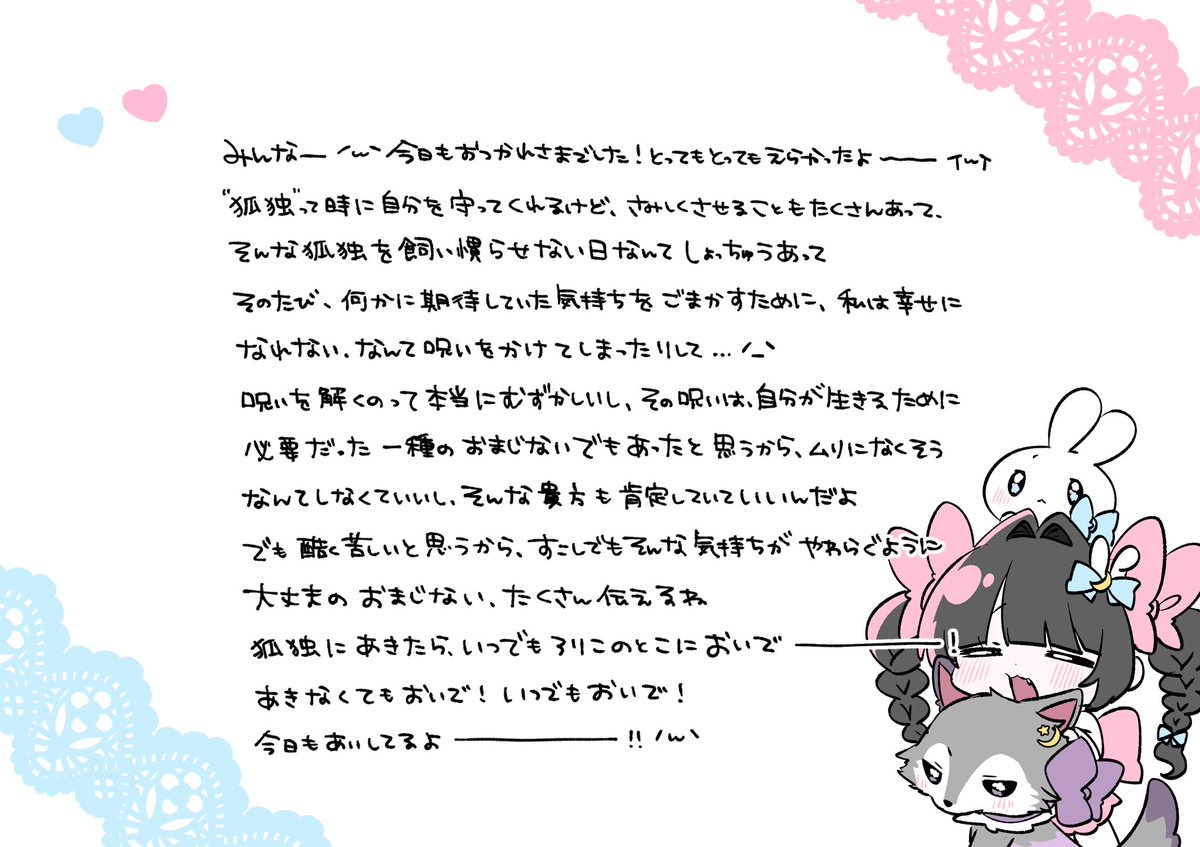 みんなー ^ω^ 今日もおつかれさまでした！とってもとってもえらかったよ—— ↑ω↑
"孤独"って時に自分を守ってくれるけど、さみしくさせることもたくさんあって、
そんな孤独を飼い慣らせない日なんてしょっちゅうあって
そのたび、何かに期待していた気持ちをごまかすために、私は幸せに
なれない、なんて呪いをかけてしまったりして… ^_^
呪いを解くのって本当にむずかしいし、その呪いは、自分が生きるために
必要だった一種のおまじないでもあったと思うから、ムリになくそう
なんてしなくていいし、そんな貴方も肯定していていいんだよ
でも酷く苦しいと思うから、すこしでもそんな気持ちがやわらぐように
大丈夫のおまじない、たくさん伝えるね
孤独にあきたら、いつでもろりこのとこにおいで————！
あきなくてもおいで！いつでもおいで！
今日もあいしてるよ————!! ^ω^